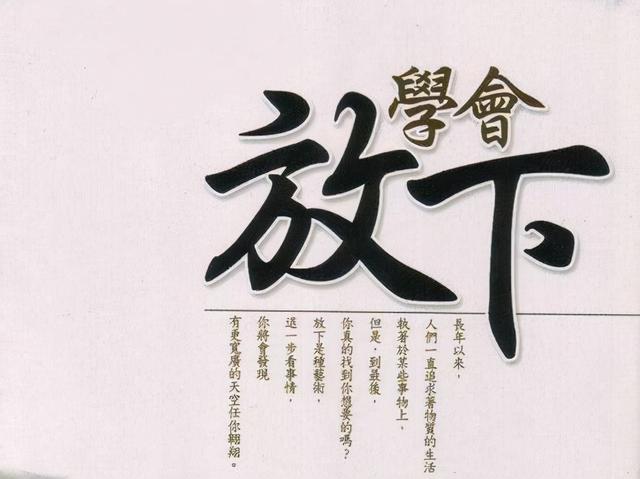 學會
放下
長年以來，
人們一直追求著物質的生活
執著於某些事物上，
但是，到最後，
你真的找到你想要的嗎？
放下是種藝術，
退一步看事情，
你將會發現
有更寬廣的天空任你翱翔。